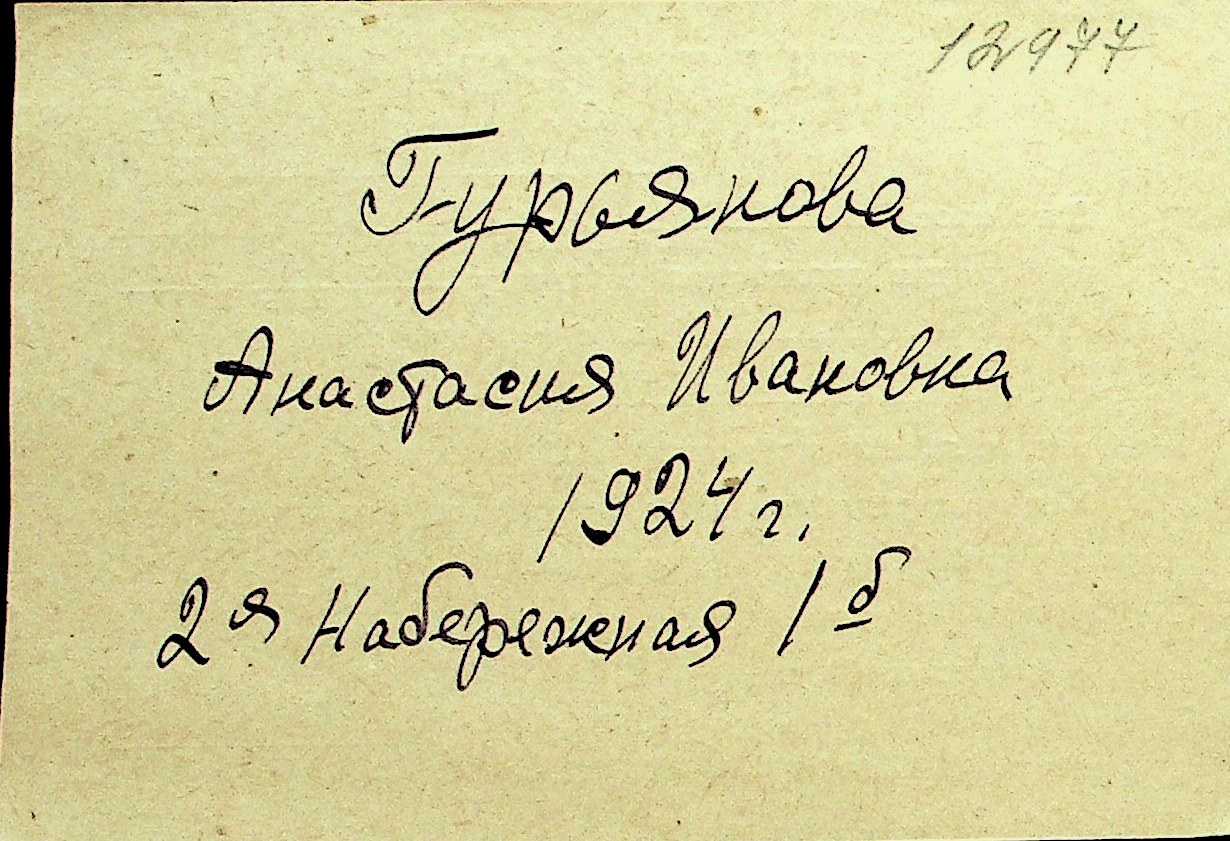 12977
Гурьянова
Анастасия Ивановна
1924 г.
2я Набережная 1б